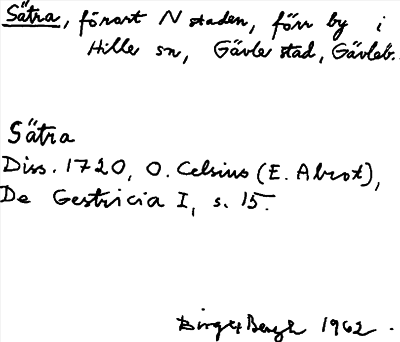 Sätra, förort N staden, förr by i
Hille sn, Gävle stad, Gävleb.
Sätra
Diss. 1720, O. Celsius (E. Abrot),
De Gestricia I, s. 15.
Birgit Bergh 1962.